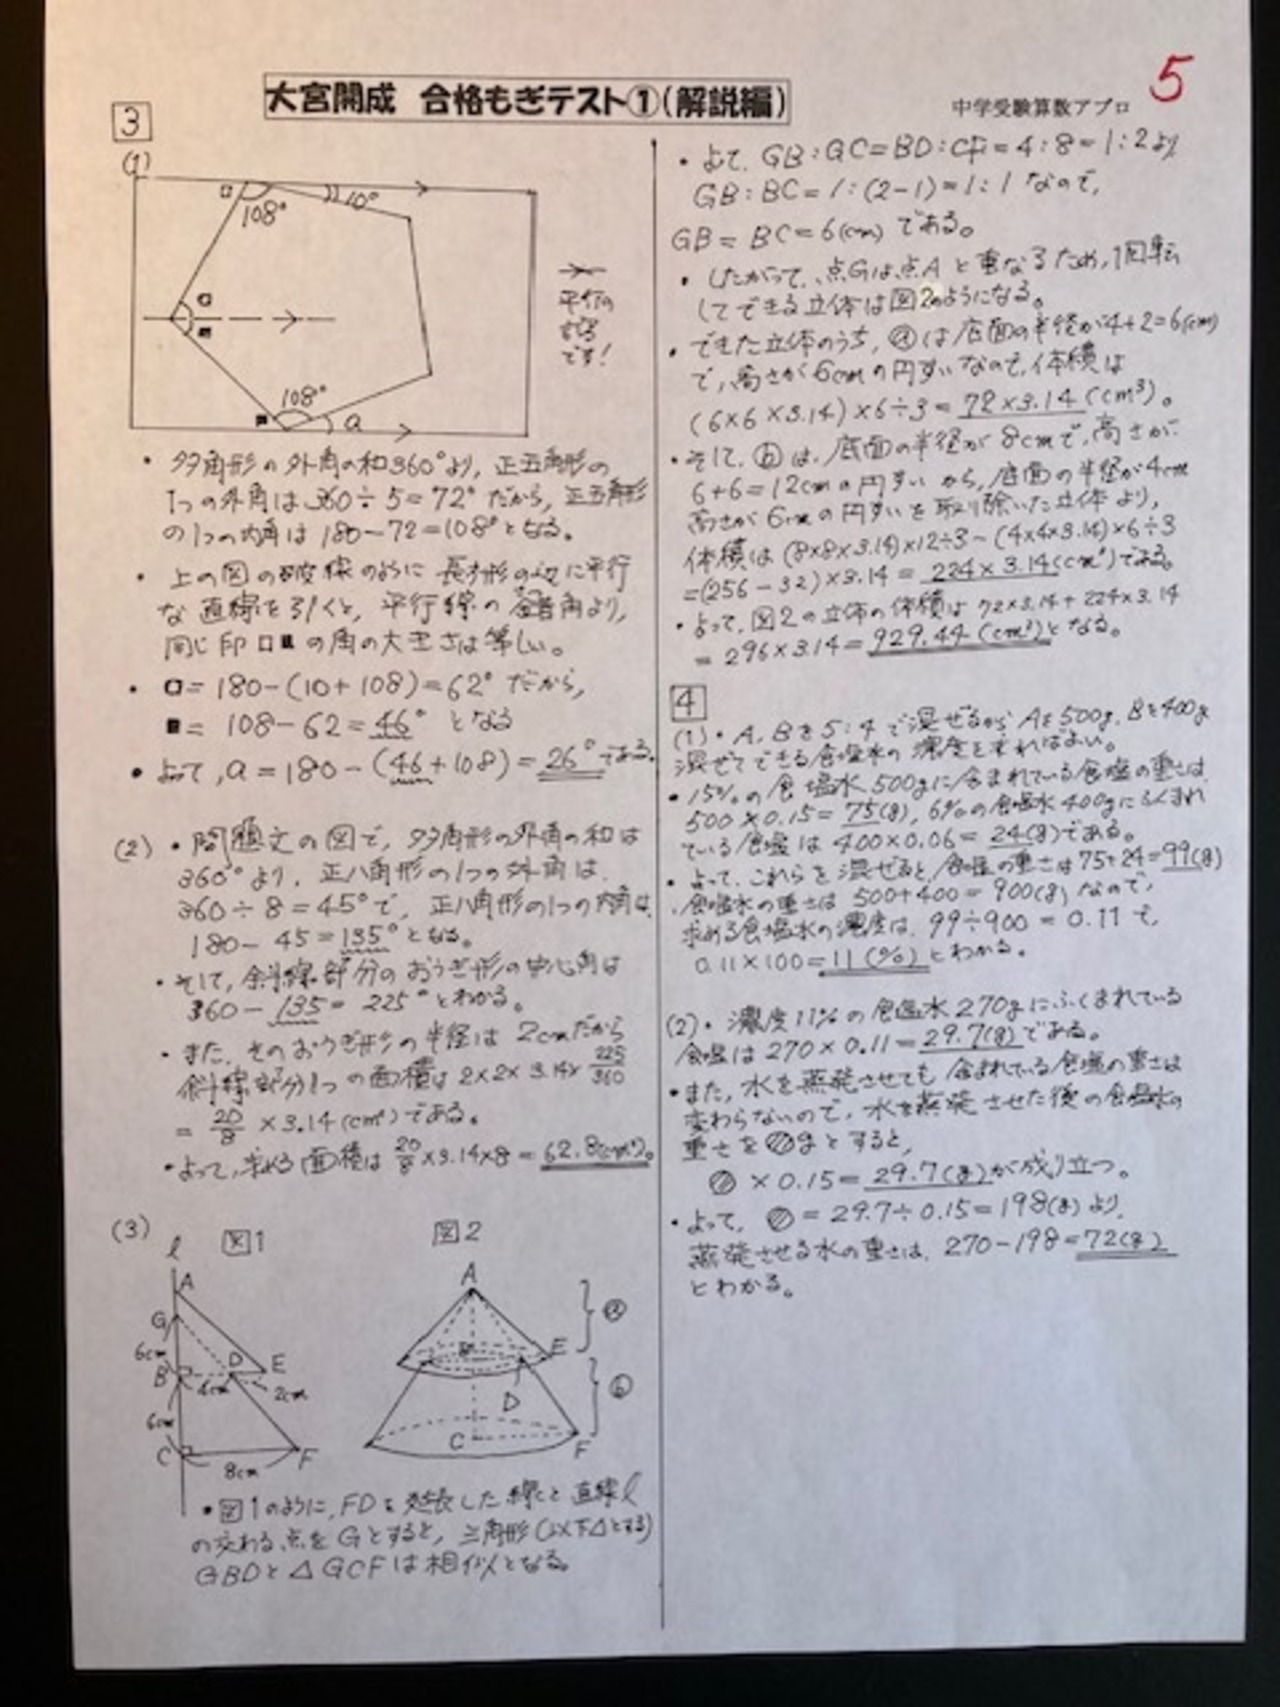 大宮開成 合格もぎテスト①(解説編)
中学受験算数アプロ
5
3
(1)
108°
10°
108°
a
平行の
記号
です!
・多角形の外角の和360°より, 正五角形の
1つの外角は360÷5=72°だから, 正五角形
の1つの内角は180-72=108°となる。
・上の図の破線のように長方形の辺に平行
な直線を引くと, 平行線の錯角より,
同じ印□■の角の大きさは等しい。
・□=180-(10+108)=62°だから,
■=108-62=46°となる
・よって, a=180-(46+108)=26°である。
(2)・問題文の図で, 多角形の外角の和は
360°より, 正八角形の1つの外角は,
360÷8=45°で, 正八角形の1つの内角は,
180-45=135°となる。
・そして, 斜線部分のおうぎ形の中心角は
360-135=225°とわかる。
・また, そのおうぎ形の半径は2cmだから
斜線部分1つの面積は2×2×3.14×225/360
=20/8×3.14(cm²)である。
・よって, 求める面積は20/8×3.14×8=62.8(cm²)。
(3)
図1
図2
l
A
G
6cm
B
4cm
D
E
2cm
6cm
C
8cm
F
A
B
E
D
C
F
ⓐ
ⓑ
・図1のように, FDを延長した線と直線l
の交わる点をGとすると, 三角形(以下△とする)
GBDと△GCFは相似となる。
・よって, GB:GC=BD:CF=4:8=1:2より
GB:BC=1:(2-1)=1:1なので,
GB=BC=6(cm)である。
・したがって, 点Gは点Aと重なるため, 1回転
してできる立体は図2のようになる。
・できた立体のうち, ⓐは底面の半径が4+2=6(cm)
で, 高さが6cmの円すいなので, 体積は
(6×6×3.14)×6÷3=72×3.14(cm³)。
・そして, ⓑは, 底面の半径が8cmで, 高さが
6+6=12cmの円すいから, 底面の半径が4cm
高さが6cmの円すいを取り除いた立体より,
体積は(8×8×3.14)×12÷3-(4×4×3.14)×6÷3
=(256-32)×3.14=224×3.14(cm³)である。
・よって, 図2の立体の体積は72×3.14+224×3.14
=296×3.14=929.44(cm³)となる。
4
(1)・A, Bを5:4で混ぜるから Aを500g, Bを400g
混ぜてできる食塩水の濃度を求めればよい。
・15%の食塩水500gに含まれている食塩の重さは
500×0.15=75(g), 6%の食塩水400gにふくまれ
ている食塩は400×0.06=24(g)である。
・よって, これらを混ぜると, 食塩の重さは75+24=99(g)
, 食塩水の重さは500+400=900(g)なので,
求める食塩水の濃度は, 99÷900=0.11で,
0.11×100=11(%)とわかる。
(2)・濃度11%の食塩水270gにふくまれている
食塩は270×0.11=29.7(g)である。
・また, 水を蒸発させても含まれている食塩の重さは
変わらないので, 水を蒸発させた後の食塩水の
重さを◍gとすると,
◍×0.15=29.7(g)が成り立つ。
・よって, ◍=29.7÷0.15=198(g)より,
蒸発させる水の重さは, 270-198=72(g)
とわかる。